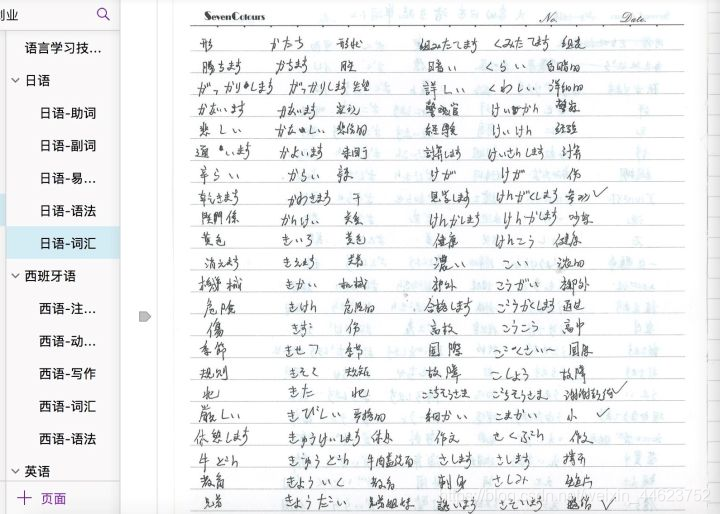 创业
语言学习技...
日语
日语-助词
日语-副词
日语-易...
日语-语法
日语-词汇
西班牙语
西语-注...
西语-动...
西语-写作
西语-词汇
西语-语法
英语
页面
SevenColours No. Date.
形 かたち 形状 組みたてます くみたてます 组走
勝ちます かちます 胜 暗い くらい 白暗的
がっかりします がっかりします 失望 詳しい くわしい 详细的
かないます かないます 实现 警察官 けいかん 警察
悲しい かなしい 悲伤的 経験 けいけん 经验
通います かよいます 計算します けいさんします 计算
辛らい からい 辣 けが けが 伤
乾きます かわきます 干 見学します けんがくします 参观
関係 かんけい 关系 けんかします けんかします 吵架
黄色 きいろ 黄色 健康 けんこう 健康
消えます きえます 濃い こい 浓的
機械 きかい 机械 郊外 こうがい 郊外
危険 きけん 危险的 合格します ごうかくします 通过
傷 きず 伤 高校 こうこう 高中
季節 きせつ 季节 国際 こくさい〜 国际
規則 きそく 规矩 故障 こしょう 故障
北 きた 北 ごちそうさま ごちそうさま 谢谢款待
厳しい きびしい 严格的 細かい こまかい 小
休憩します きゅうけいします 休息 作文 さくぶん 作文
牛どん ぎゅうどん 牛肉盖浇饭 さします さします
教育 きょういく 教育 刺身 さしみ
兄弟 きょうだい 兄弟姐妹 誘います さそいます